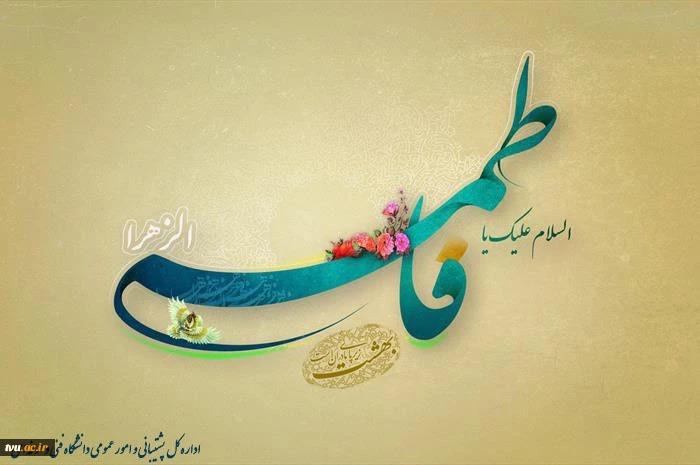 السلام علیک یا
فاطمه
الزهرا
بهشت زیر پای مادران است
اداره کل پشتیبانی و امور عمومی دانشگاه فنی و
tvu.ac.ir